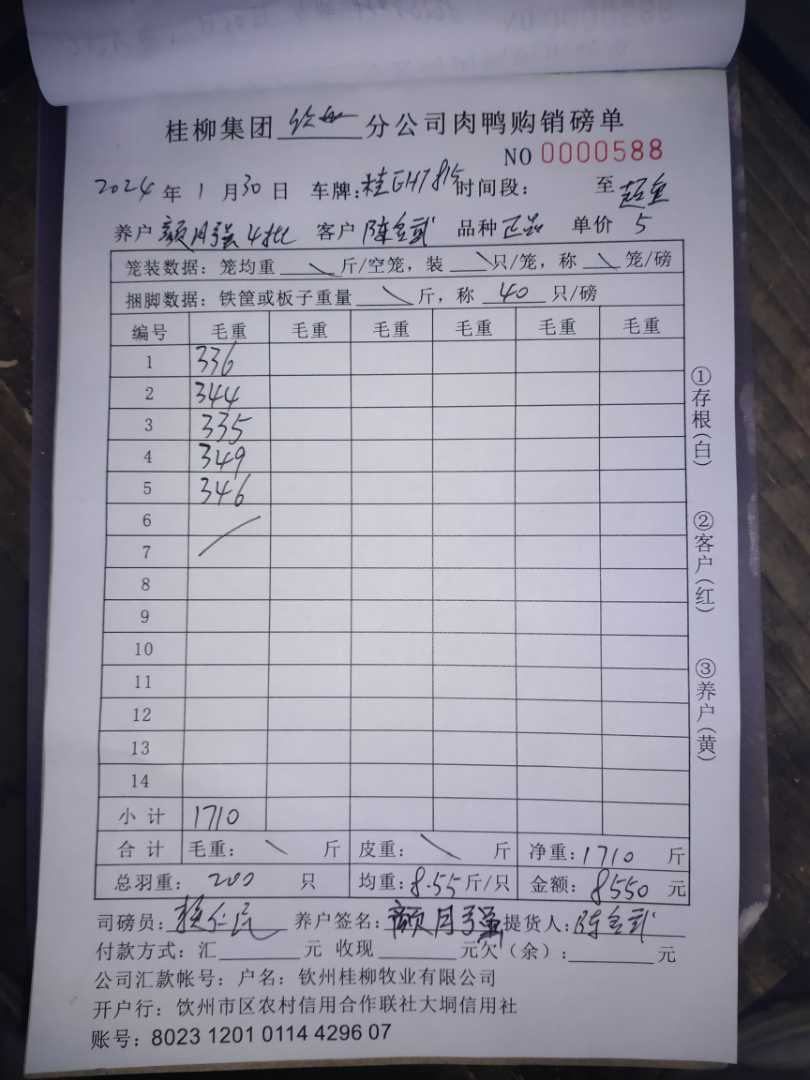 桂柳集团 钦州 分公司肉鸭购销磅单
NO 0000588
2024 年 1 月 30 日 车牌: 桂 时间段: 至
养户 颜月强 4批 客户 陈 武 品种 正品 单价 5
笼装数据: 笼均重 \ 斤/空笼, 装 \ 只/笼, 称 \ 笼/磅
捆脚数据: 铁筐或板子重量 \ 斤, 称 40 只/磅
编号 毛重 毛重 毛重 毛重 毛重 毛重
1 336
2 344
3 335
4 349
5 346
6
7
8
9
10
11
12
13
14
小 计 1710
合 计 毛重: \ 斤 皮重: \ 斤 净重: 1710 斤
总羽重: 200 只 均重: 8.55 斤/只 金额: 8550 元
司磅员: 养户签名: 颜月强 提货人: 陈 武
付款方式: 汇 元 收现 元欠(余): 元
公司汇款帐号: 户名: 钦州桂柳牧业有限公司
开户行: 饮州市区农村信用合作联社大垌信用社
账号: 8023 1201 0114 4296 07
①存根(白)
②客户(红)
③养户(黄)